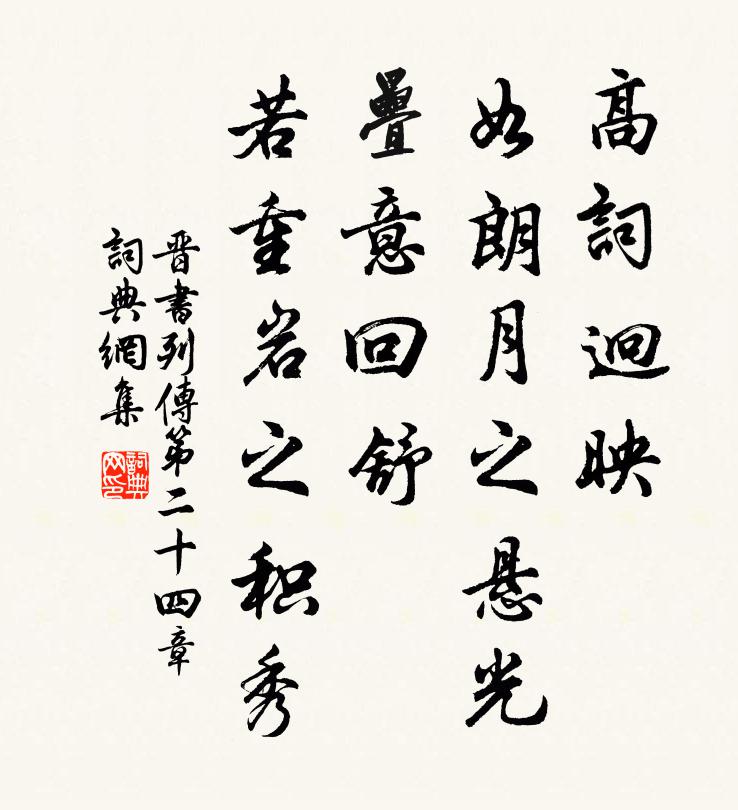 高詞迥映
如朗月之悬光
疊意回舒
若重岩之积秀
晋書列傳第二十四章
詞典網集
詞典网印